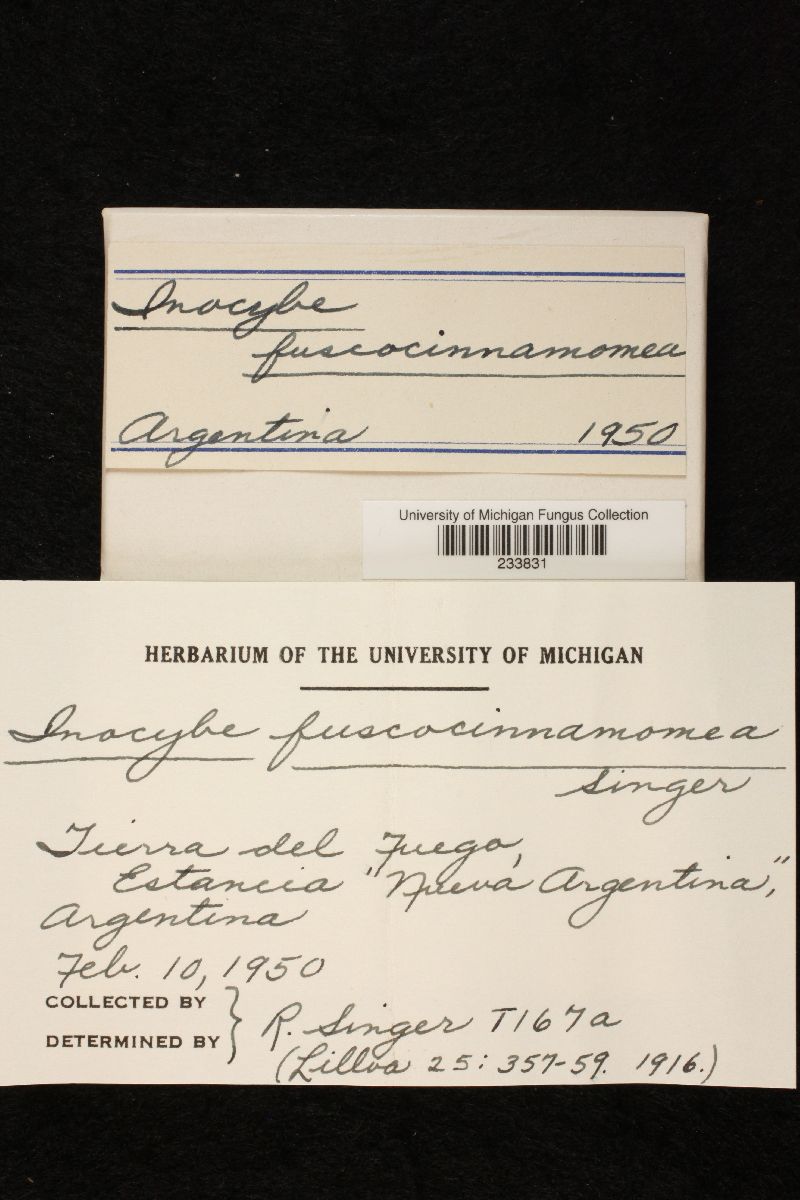 Inocybe
fuscocinnamomea
Argentina 1950
University of Michigan Fungus Collection
233831
HERBARIUM OF THE UNIVERSITY OF MICHIGAN
Inocybe fuscocinnamomea
Singer
Tierra del Fuego,
Estancia "Nueva Argentina",
Argentina
Feb. 10, 1950
COLLECTED BY
DETERMINED BY } R. Singer T167a
(Lilloa 25: 357-59. 1916.)